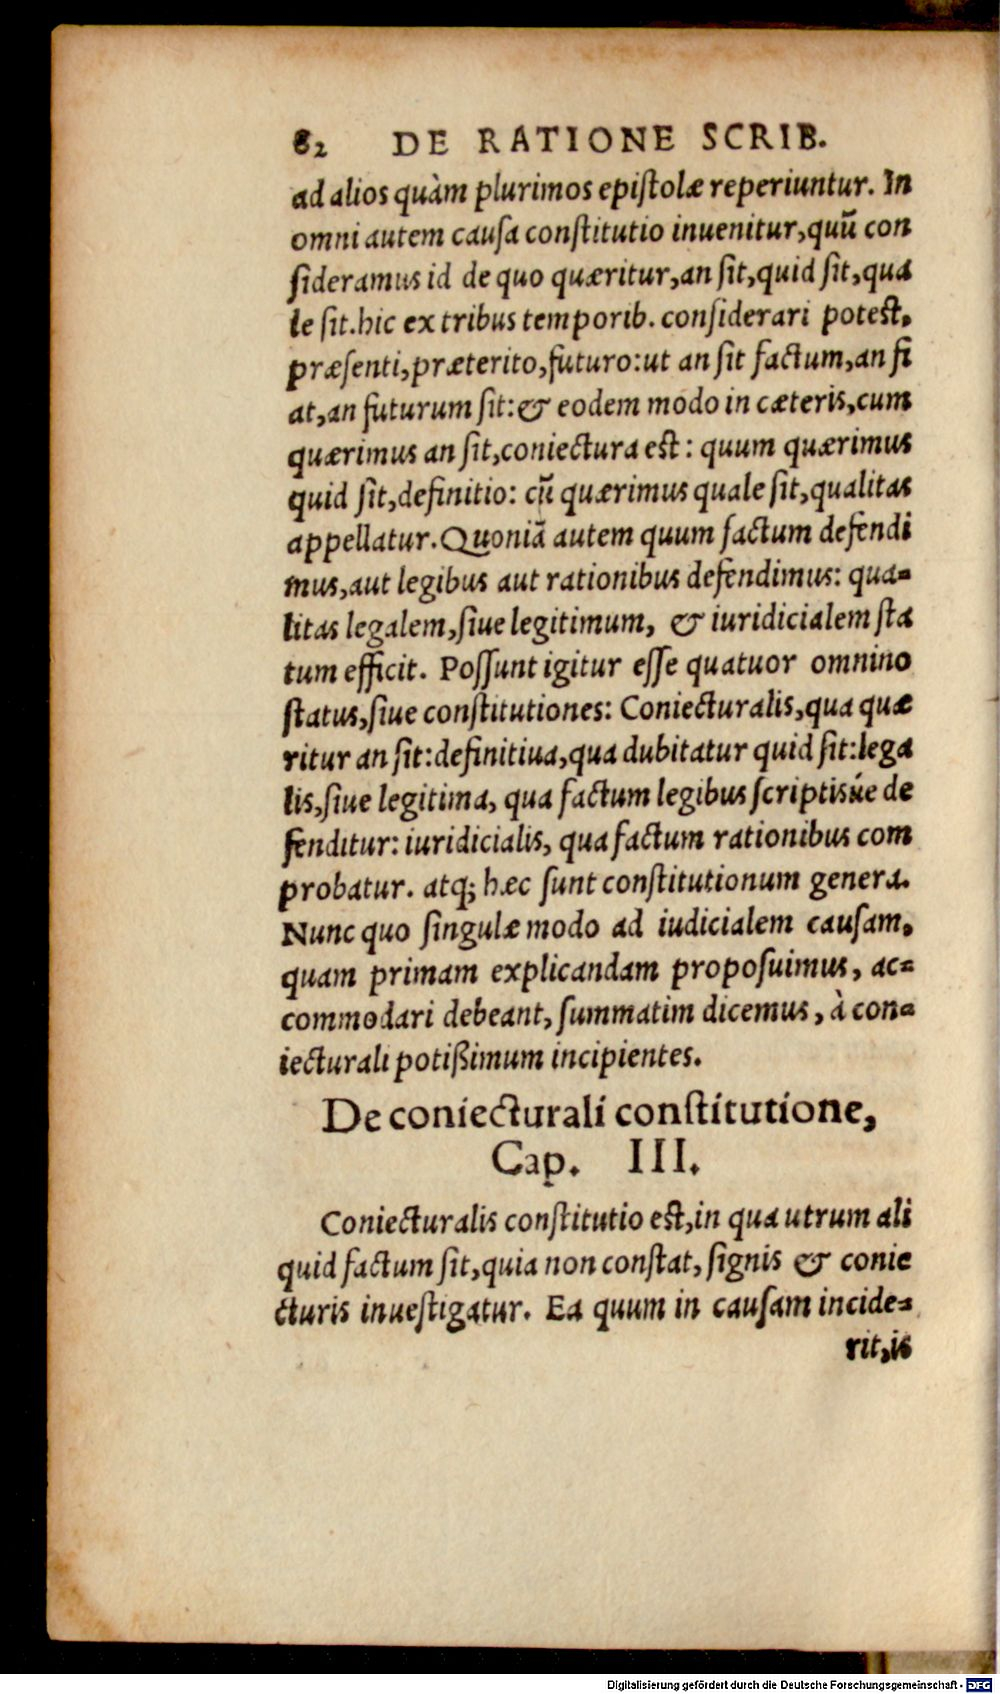 82 DE RATIONE SCRIB.
ad alios quàm plurimos epiſtolæ reperiuntur. In
omni autem cauſa conſtitutio inuenitur, quũ con
ſideramus id de quo quæritur, an ſit, quid ſit, qua
le ſit. hic ex tribus temporib. conſiderari poteſt,
præſenti, præterito, futuro: ut an ſit factum, an fi
at, an futurum ſit: & eodem modo in cæteris, cum
quærimus an ſit, coniectura eſt: quum quærimus
quid ſit, definitio: cũ quærimus quale ſit, qualitas
appellatur. Quoniã autem quum factum defendi
mus, aut legibus aut rationibus defendimus: qua-
litas legalem, ſiue legitimum, & iuridicialem ſta
tum efficit. Poſſunt igitur eſſe quatuor omnino
ſtatus, ſiue conſtitutiones: Coniecturalis, qua quæ
ritur an ſit: definitiua, qua dubitatur quid ſit: lega
lis, ſiue legitima, qua factum legibus ſcriptisúe de
fenditur: iuridicialis, qua factum rationibus com
probatur. atq; hæc ſunt conſtitutionum genera.
Nunc quo ſingulæ modo ad iudicialem cauſam,
quam primam explicandam propoſuimus, ac-
commodari debeant, ſummatim dicemus, à con-
iecturali potißimum incipientes.
De coniecturali conſtitutione,
Cap. III.
Coniecturalis conſtitutio eſt, in qua utrum ali
quid factum ſit, quia non conſtat, ſignis & conie
cturis inueſtigatur. Ea quum in cauſam incide-
rit, is
Digitalisierung gefördert durch die Deutsche Forschungsgemeinschaft - DFG